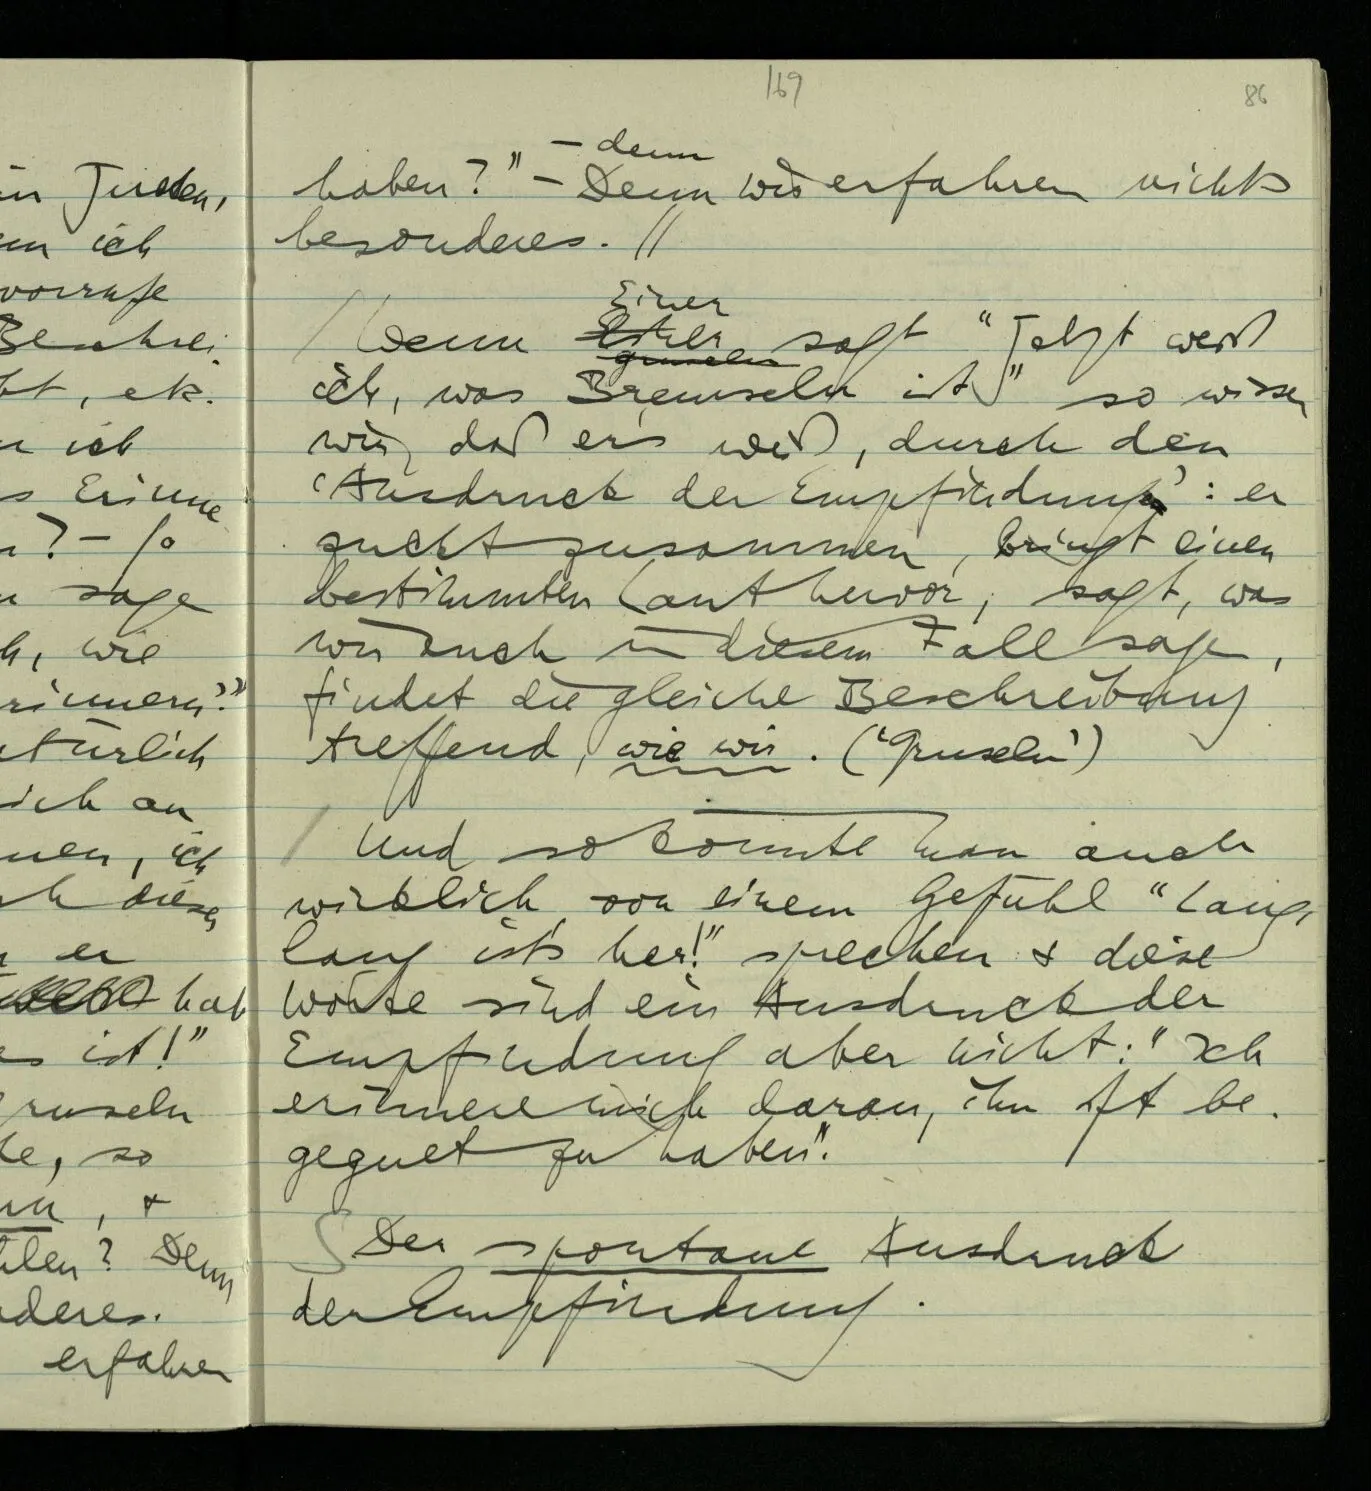 169
86
in Jucken,
ich
vorrufe
Beschrei
etc.
ich
Erinne
? – So
sage
wie
rinnern?"
türlich
sich an
nen, ich
diese
er
hab
ist!"
ruseln
so
+
hlen? Denn
deres.
erfahren
– denn
haben?" – Denn wir erfahren nichts
besonderes. //
/ Wenn Einer sagt "Jetzt weiß
gruseln
ich, was Bremseln ist" so wissen
wir, daß er's weiß, durch den
'Ausdruck der Empfindung': er
zuckt zusammen, bringt einen
bestimmten Laut hervor, sagt, was
wir auch in diesem Fall sagen,
findet die gleiche Beschreibung
treffend, wie wir. ('Gruseln')
/ Und so könnte man auch
wirklich von einem Gefühl "Lang,
lang ist's her!" sprechen & diese
Worte sind ein Ausdruck der
Empfindung aber nicht: "Ich
erinnere mich daran, ihm oft be-
gegnet zu haben".
S Der spontane Ausdruck
der Empfindung.